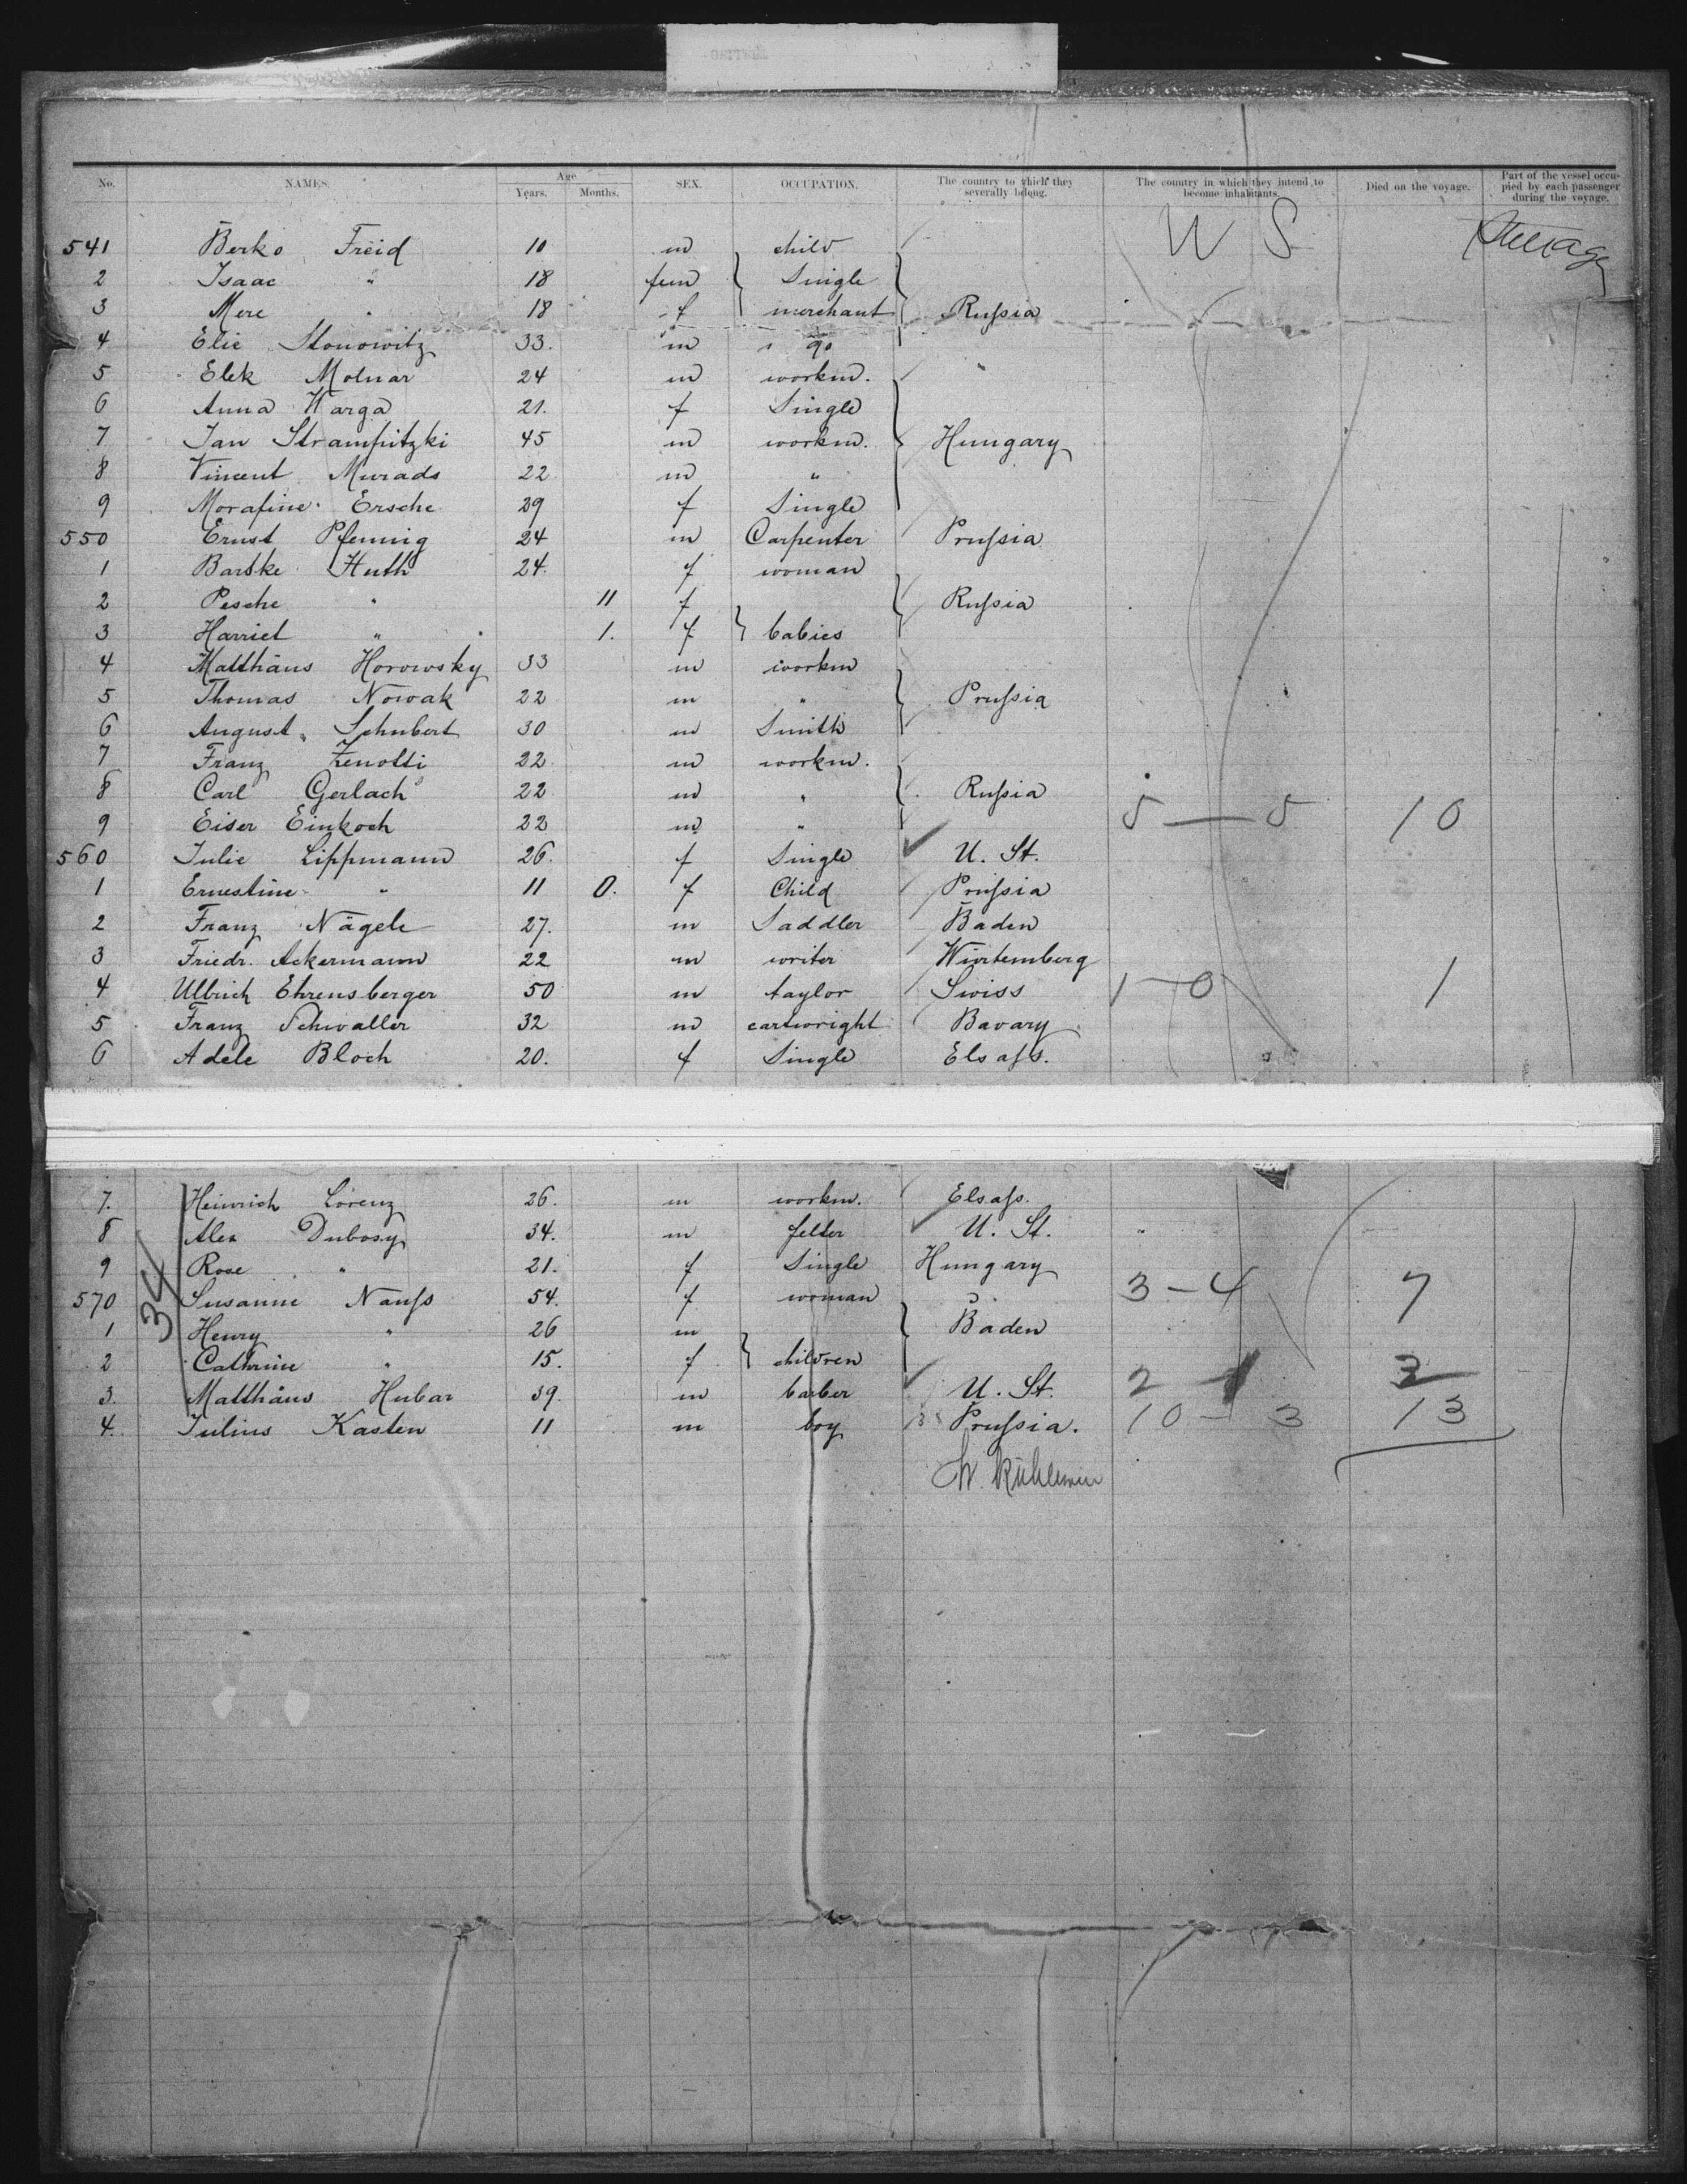 No. NAMES. Age Years. Months. SEX. OCCUPATION. The country to which they severally belong. The country in which they intend to become inhabitants. Died on the voyage. Part of the vessel occupied by each passenger during the voyage.
U S Steerage
541 Berko Freid 10 m child
2 Isaac " 18 fem Single
3 Mere " 18 f merchant Rußia
4 Elie Stonowitz 33. m do
5 Elek Molnar 24 m workm. "
6 Anna Warga 21. f Single
7 Jan Strampitzki 45 m workm. Hungary
8 Vincent Murads 22 m "
9 Morafine Ersche 29 f Single
550 Ernst Pfennig 24 m Carpenter Prußia
1 Barske Huth 24 f woman
2 Pesche " 11 f Rußia
3 Harriet " 1. f babies
4 Matthäus Horowsky 33 m workm
5 Thomas Nowak 22 m " Prußia
6 August Schubert 30 m Smith
7 Franz Zenolti 22 m workm.
8 Carl Gerlach 22 m " Rußia
9 Eiser Einkoch 22 m " 5 — 5 10
560 Julie Lippmann 26. f Single U. St.
1 Ernestine " 11 0. f Child Prußia
2 Franz Nägele 27. m Saddler Baden
3 Friedr. Ackermann 22 m writer Würtemberg
4 Ulbrich Ehrensberger 50 m taylor Swiss 1 - 0 1
5 Franz Schwaller 32 m cartwright Bavary
6 Adele Bloch 20. f Single Elsaß.
7. Heinrich Lorenz 26. m workm. Elsaß.
8 Alex Dubosy 34. m felter U. St. "
9 Rose " 21. f Single Hungary
34
570 Susanne Nauß 54. f woman 3 - 4 7
1 Henry " 26 m Baden
2 Cathrine " 15. f children
3. Matthäus Hubar 39. m barber U. St. 2 - 1 3
4. Julius Kasten 11 m boy Prußia. 10 - 3 13